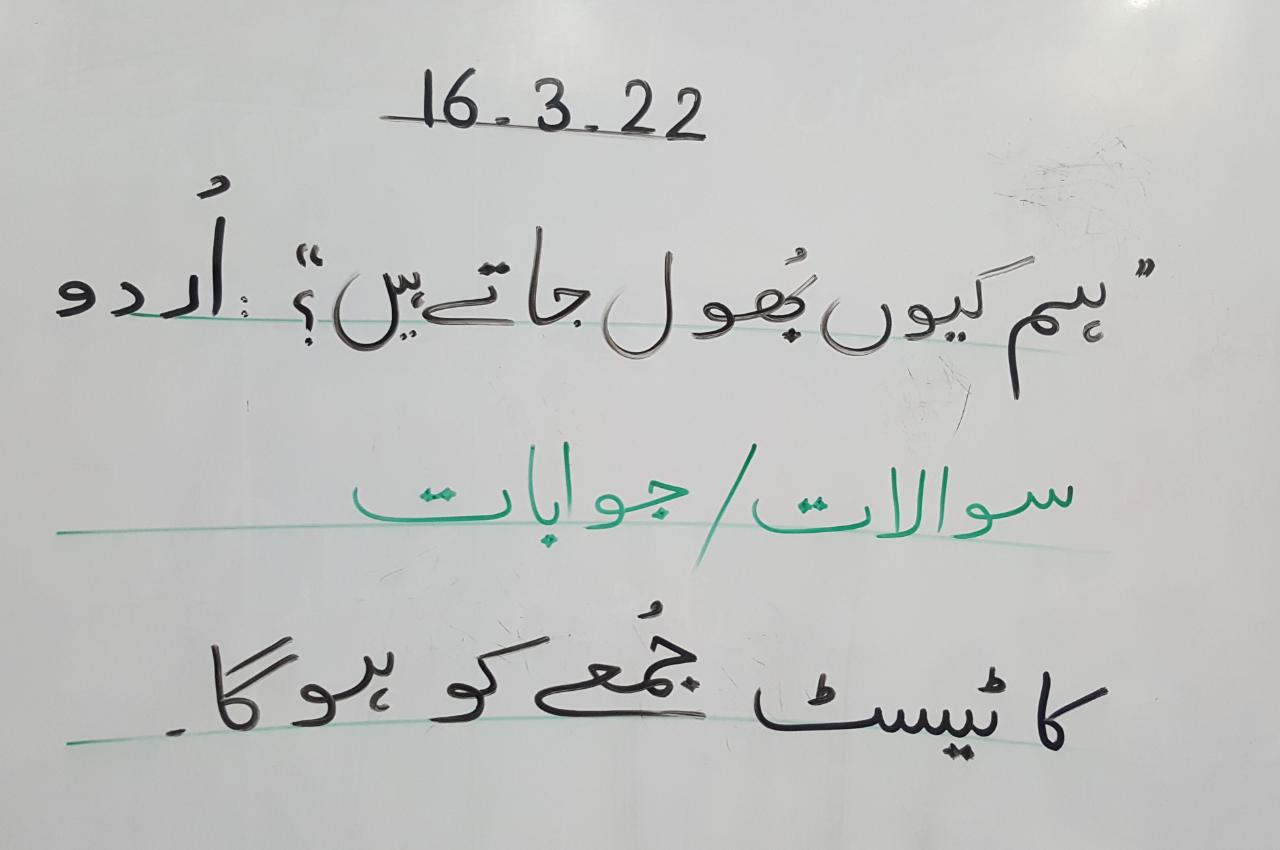 16.3.22
"ہم کیوں بُھول جاتے ہیں؟" :اُردو
سوالات/جوابات
کا ٹیسٹ جُمعے کو ہو گا۔